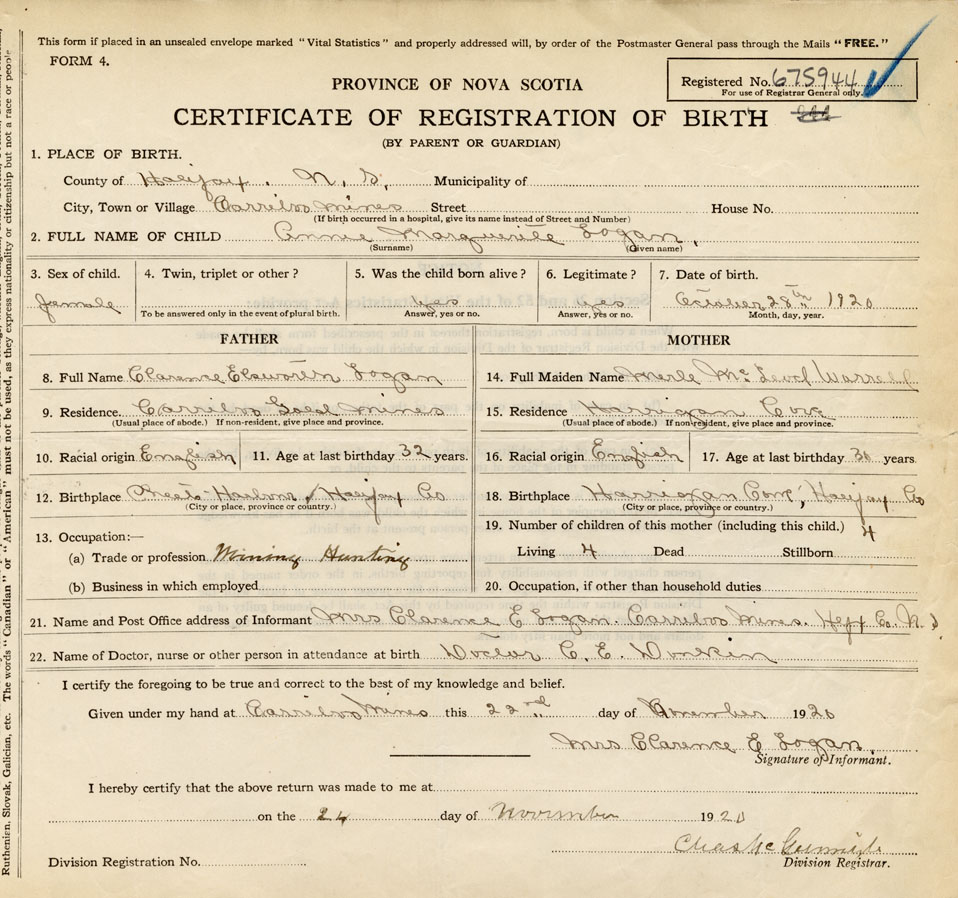 This form if placed in an unsealed envelope marked "Vital Statistics" and properly addressed will, by order of the Postmaster General pass through the Mails "FREE."
FORM 4.
Registered No. 675944
For use of Registrar General only.
PROVINCE OF NOVA SCOTIA
CERTIFICATE OF REGISTRATION OF BIRTH
(BY PARENT OR GUARDIAN)
1. PLACE OF BIRTH.
County of Halifax. N. S. Municipality of
City, Town or Village Carriboo mines Street House No.
(If birth occurred in a hospital, give its name instead of Street and Number)
2. FULL NAME OF CHILD Annie Marguerite Logan
(Surname) (Given name)
3. Sex of child. 4. Twin, triplet or other? 5. Was the child born alive? 6. Legitimate? 7. Date of birth.
female yes yes October 28th 1920
To be answered only in the event of plural birth. Answer, yes or no. Answer, yes or no. Month, day, year.
FATHER MOTHER
8. Full Name Clarence Elsworth Logan 14. Full Maiden Name Merle Mc Leod
9. Residence Carriboo Gold Mines 15. Residence Harrigan Cove
(Usual place of abode.) If non-resident, give place and province. (Usual place of abode.) If non-resident, give place and province.
10. Racial origin English 11. Age at last birthday 32 years. 16. Racial origin English 17. Age at last birthday 30 years.
12. Birthplace Harbour, Halifax Co 18. Birthplace Harrigan Cove, Halifax Co
(City or place, province or country.) (City or place, province or country.)
13. Occupation:— 19. Number of children of this mother (including this child.) 4
(a) Trade or profession Mining Hunting Living 4 Dead Stillborn
(b) Business in which employed 20. Occupation, if other than household duties
21. Name and Post Office address of Informant Mrs Clarence E Logan. Carriboo Mines. Hfx Co. N. S
22. Name of Doctor, nurse or other person in attendance at birth Doctor C. E. Donkin
I certify the foregoing to be true and correct to the best of my knowledge and belief.
Given under my hand at Carriboo Mines this 22nd day of November 1920
Mrs Clarence E Logan.
Signature of Informant.
I hereby certify that the above return was made to me at
on the 24 day of November 1920
Chas
Division Registration No. Division Registrar.
The words "Canadian" or "American" must not be used, as they express nationality or citizenship but not a race or people
Ruthenien, Slovak, Galician, etc.